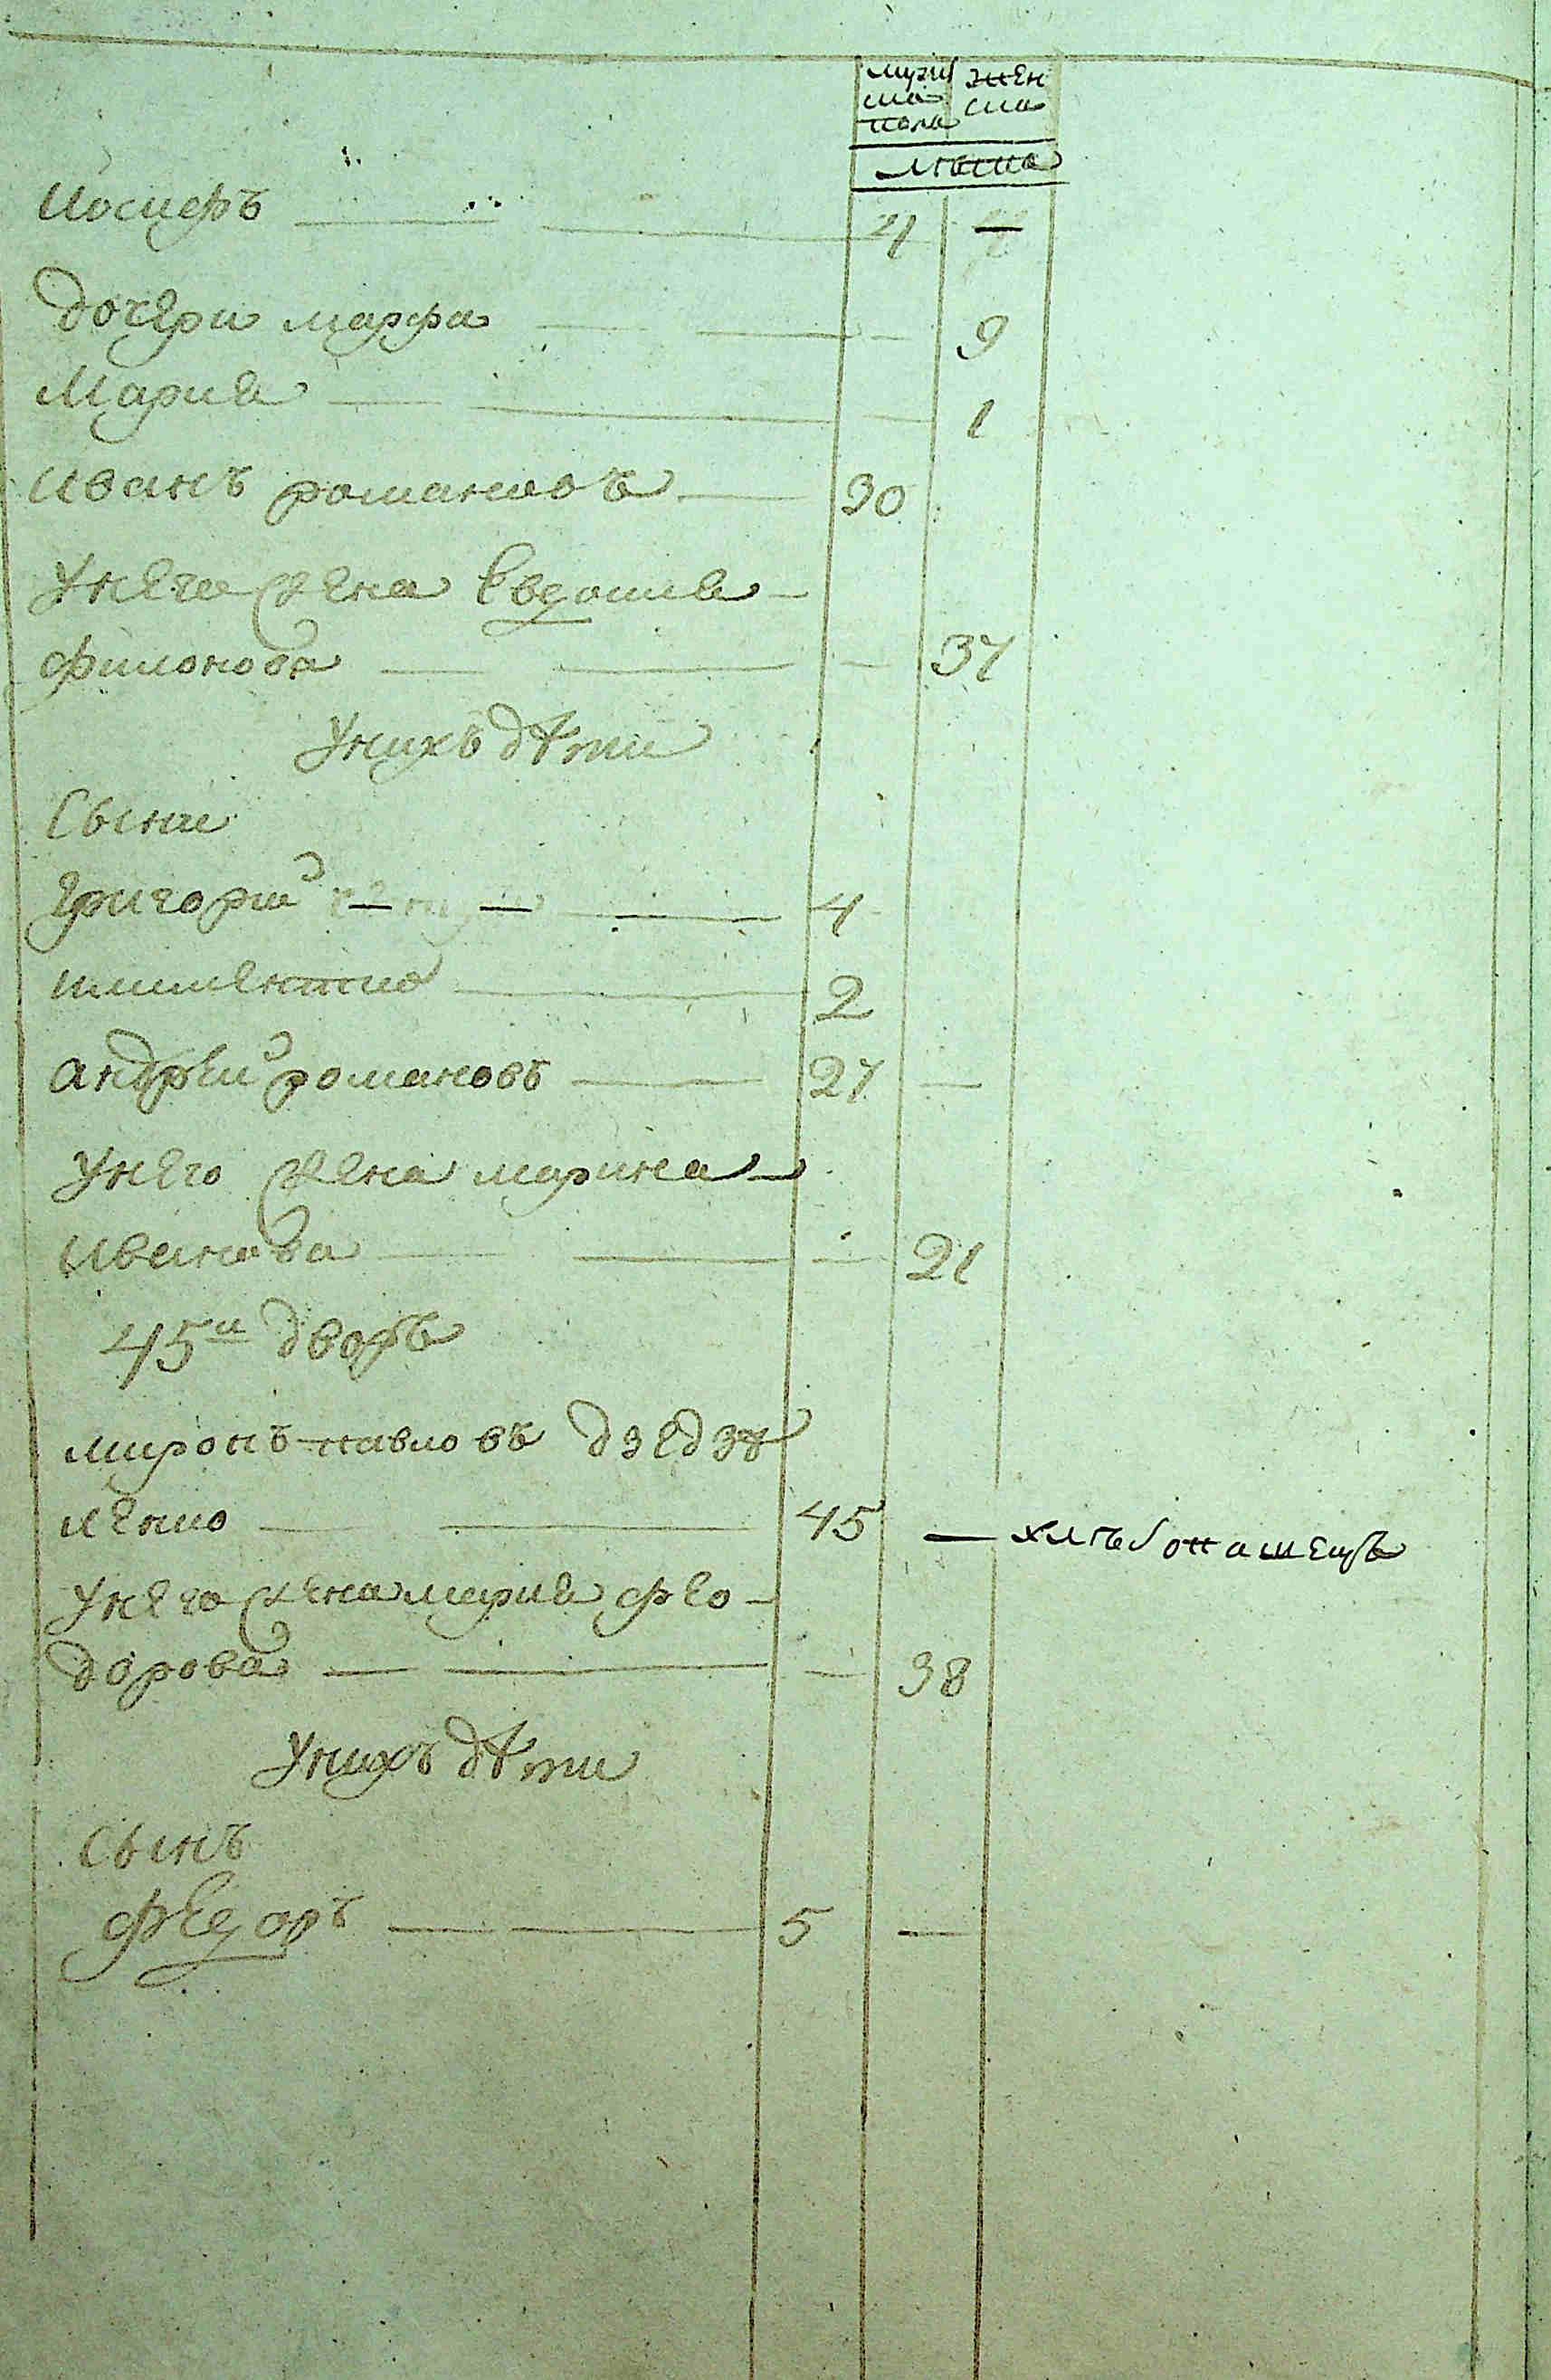 мужс жен
ка ска
пола
лѣта
Иосифъ — 4 —
дочери марфа — 9
Мария — 1
иванъ романовъ — 30
унего жена Евдокия
филонова — 37
унихъ дѣти
Сыни
григории — 4
андреи романовъ — 27 —
унего жена марина
иванова — 21
45й дворъ
миронъ павловъ дзедзю
ленко — 45 — хлѣбопашецъ
унего жена мария фео-
дорова — 38
унихъ дѣти
Сынъ
Федоръ — 5 —